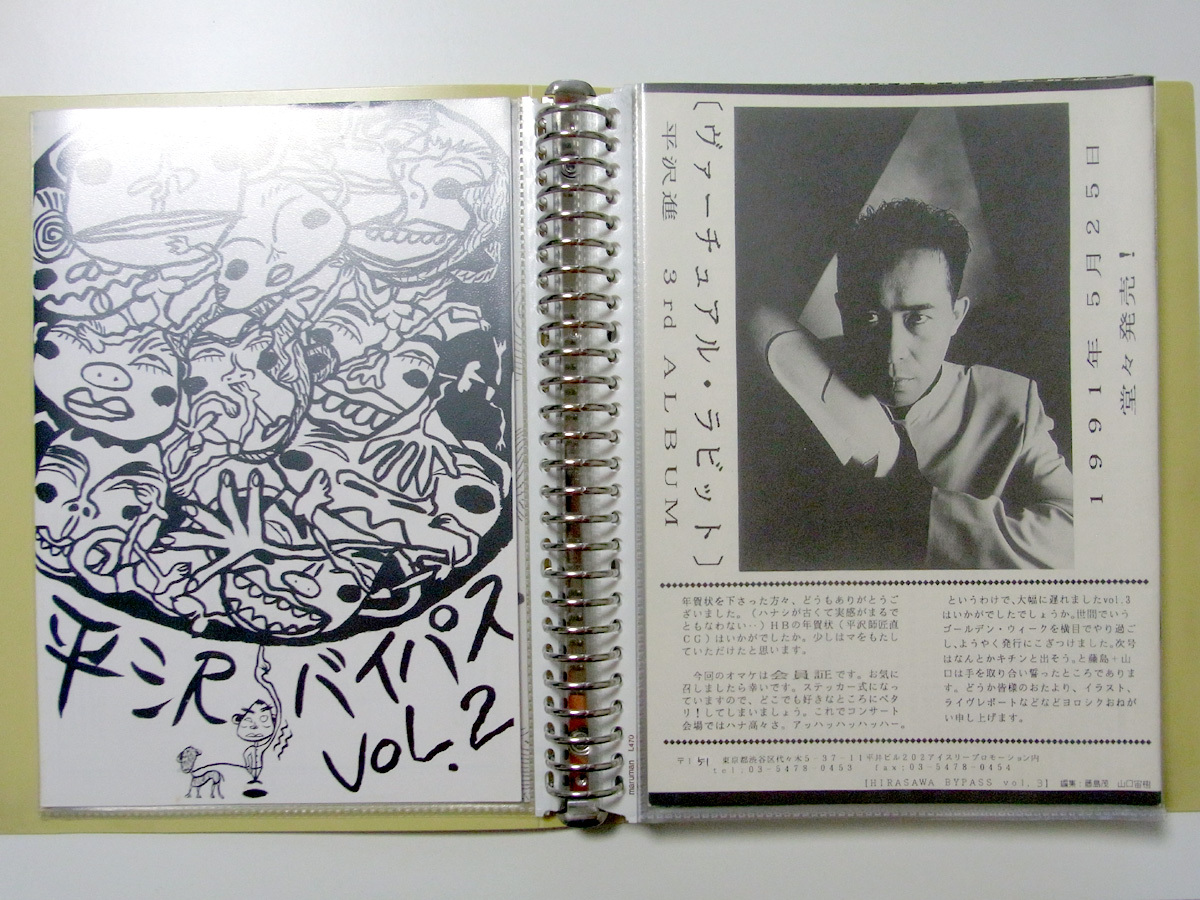 平沢バイパス
VOL.2
maruman L470
〔ヴァーチュアル・ラビット〕
平沢進 3rd ALBUM
1991年5月25日
堂々発売!
年賀状を下さった方々、どうもありがとうご
ざいました。(ハナシが古くて実感がまるで
ともなわない‥)HBの年賀状(平沢師匠直
CG)はいかがでしたか。少しはマをもたし
ていただけたと思います。
今回のオマケは会員証です。お気に
召しましたら幸いです。ステッカー式になっ
ていますので、どこでも好きなところにペタ
リ!してしまいましょう。これでコンサート
会場ではハナ高々さ。アッハッハッハッハー。
というわけで、大幅に遅れましたvol.3
はいかがでしたでしょうか。世間でいう
ゴールデン・ウィークを横目でやり過ご
し、ようやく発行にこぎつけました。次号
はなんとかキチンと出そう。と藤島+山
口は手を取り合い誓ったところでありま
す。どうか皆様のおたより、イラスト、
ライヴレポートなどなどヨロシクおねが
い申し上げます。
〒151 東京都渋谷区代々木5-37-11平井ビル202アイスリープロモーション内
tel;03-5478-0453 fax;03-5478-0454
[HIRASAWA BYPASS vol.3] 編集:藤島茂 山口宙樹